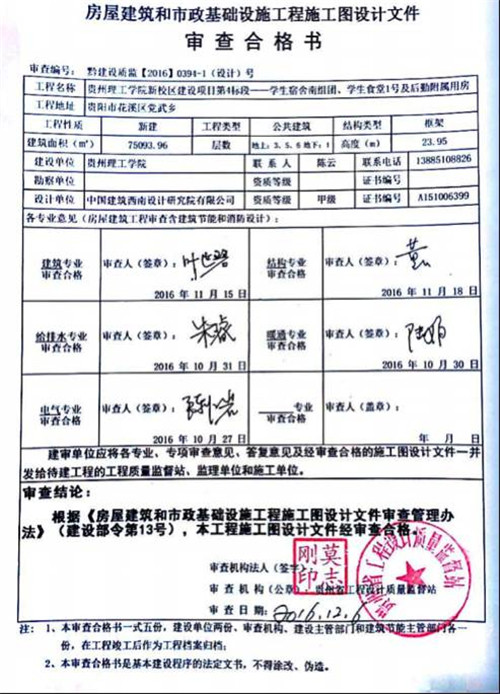 房屋建筑和市政基础设施工程施工图设计文件
审查合格书
审查编号：黔建设质监【2016】0394-1（设计）号
工程名称 贵州理工学院新校区建设项目第4标段——学生宿舍南组团、学生食堂1号及后勤附属用房
工程地址 贵阳市花溪区党武乡
工程性质 新建 工程类型 公共建筑 结构类型 框架
建筑面积（㎡） 75093.96 层数 地上：3、5、6 地下：1 高度（m） 23.95
建设单位 贵州理工学院 联系人 陈云 联系电话 13885108826
勘察单位 资质等级 证书编号
设计单位 中国建筑西南设计研究院有限公司 资质等级 甲级 证书编号 A151006399
各专业意见（房屋建筑工程审查含建筑节能和消防设计）：
建筑专业 审查人（签章）： 结构专业 审查人（签章）：
审查合格 审查合格
2016 年 11 月 15 日 2016 年 11 月 18 日
给排水专业 审查人（签章）： 暖通专业 审查人（签章）：
审查合格 审查合格
2016 年 10 月 31 日 2016 年 10 月 30 日
电气专业 审查人（签章）： 专业 审查人（盖章）：
审查合格 审查合格
2016 年 10 月 27 日 年 月 日
建审单位应将各专业、专项审查意见、答复意见及经审查合格的施工图设计文件一并
发给待建工程的工程质量监督站、监理单位和施工单位。
审查结论：
根据《房屋建筑和市政基础设施工程施工图设计文件审查管理办
法》（建设部令第13号），本工程施工图设计文件经审查合格。
审查机构法人（签字）：
莫志刚印
审查机构（公章）：贵州省工程设计质量监督站
贵州省工程设计质量监督站
审查日期： 2016.12.6
注：1、本审查合格书一式五份，建设单位两份、审查机构、建设主管部门和建筑节能主管部门各一
份，在工程竣工后作为工程档案归档；
2、本审查合格书是基本建设程序的法定文书，不得涂改、伪造。